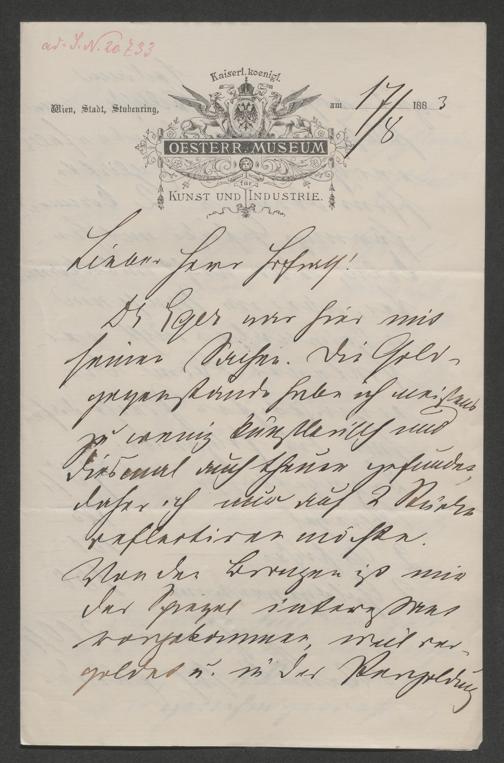 ad. I.N. 20733
Kaiserl. koenigl.
Wien, Stadt, Stubenring, am 17/8 1883
OESTERR. MUSEUM
für
KUNST UND INDUSTRIE.
Lieber Herr Hofrath!
Dr Egger war hier mit
seinen Sachen. Die Gold-
gegenstände habe ich meistens
zu wenig künstlerisch und
diesmal auch theuer gefunden,
daher ich nur auf 2 Stücke
reflectiren möchte.
Von den Bronzen ist mir
der Spiegel interessant
vorgekommen, weil ver-
goldet u. in der Vergoldung